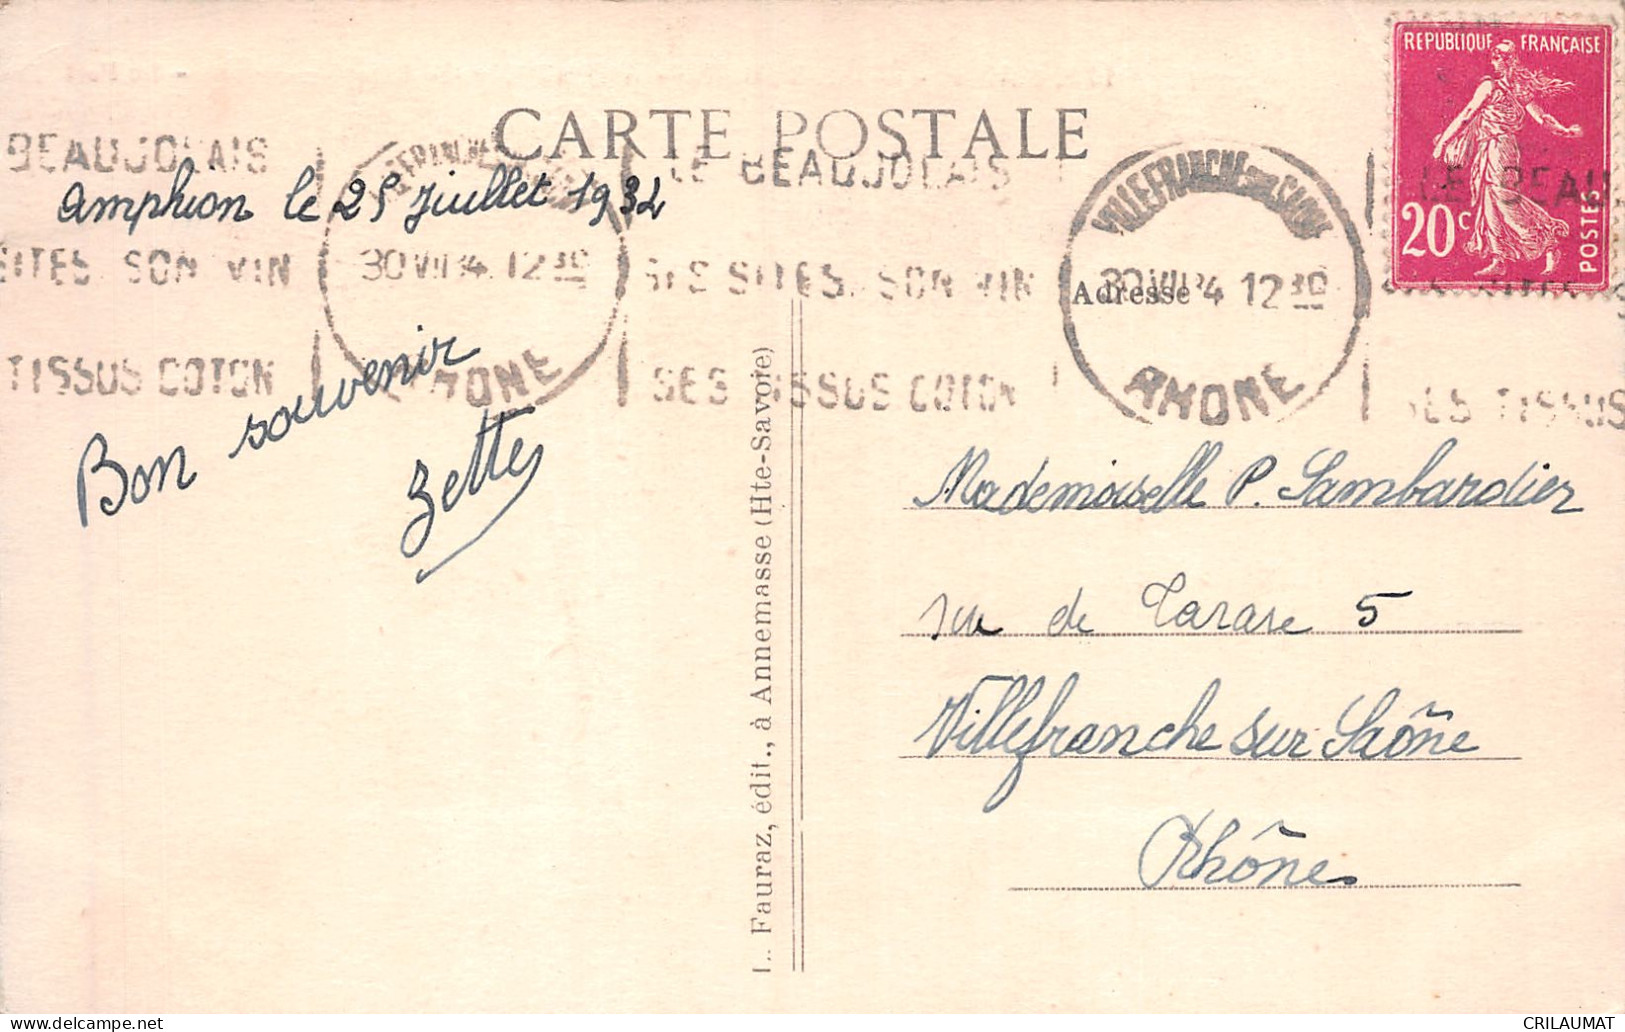 REPUBLIQUE FRANÇAISE
20c
POSTES
CARTE POSTALE
BEAUJOLAIS
LE BEAUJOLAIS
VILLEFRANCHE SUR SAONE
LE BEAU
Amphion le 25 Juillet 1934
SITES SON VIN
30 VII 34 12 30
SES SITES SON VIN
Adresse
30 VII 34 12 30
TISSUS COTON
RHONE
SES TISSUS COTON
RHONE
SES TISSUS
Bon souvenir
Zette
Mademoiselle P. Lambardier
rue de Tarare 5
Villefranche sur Saône
Rhône
L. Fauraz, édit., à Annemasse (Hte-Savoie)
CRILAUMAT